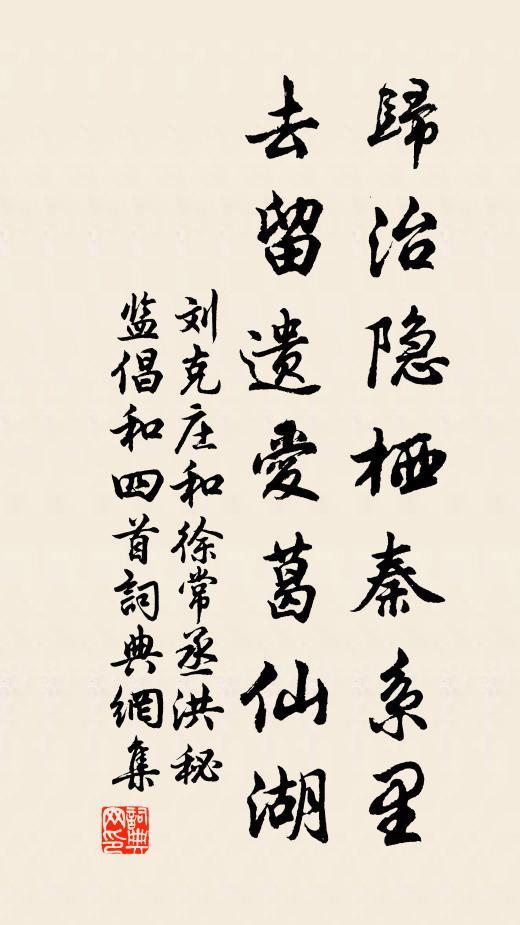 歸治隐栖秦系里
去留遗愛葛仙湖
刘克庄和徐常丞洪秘
监倡和四首詞典網集
詞典
网印